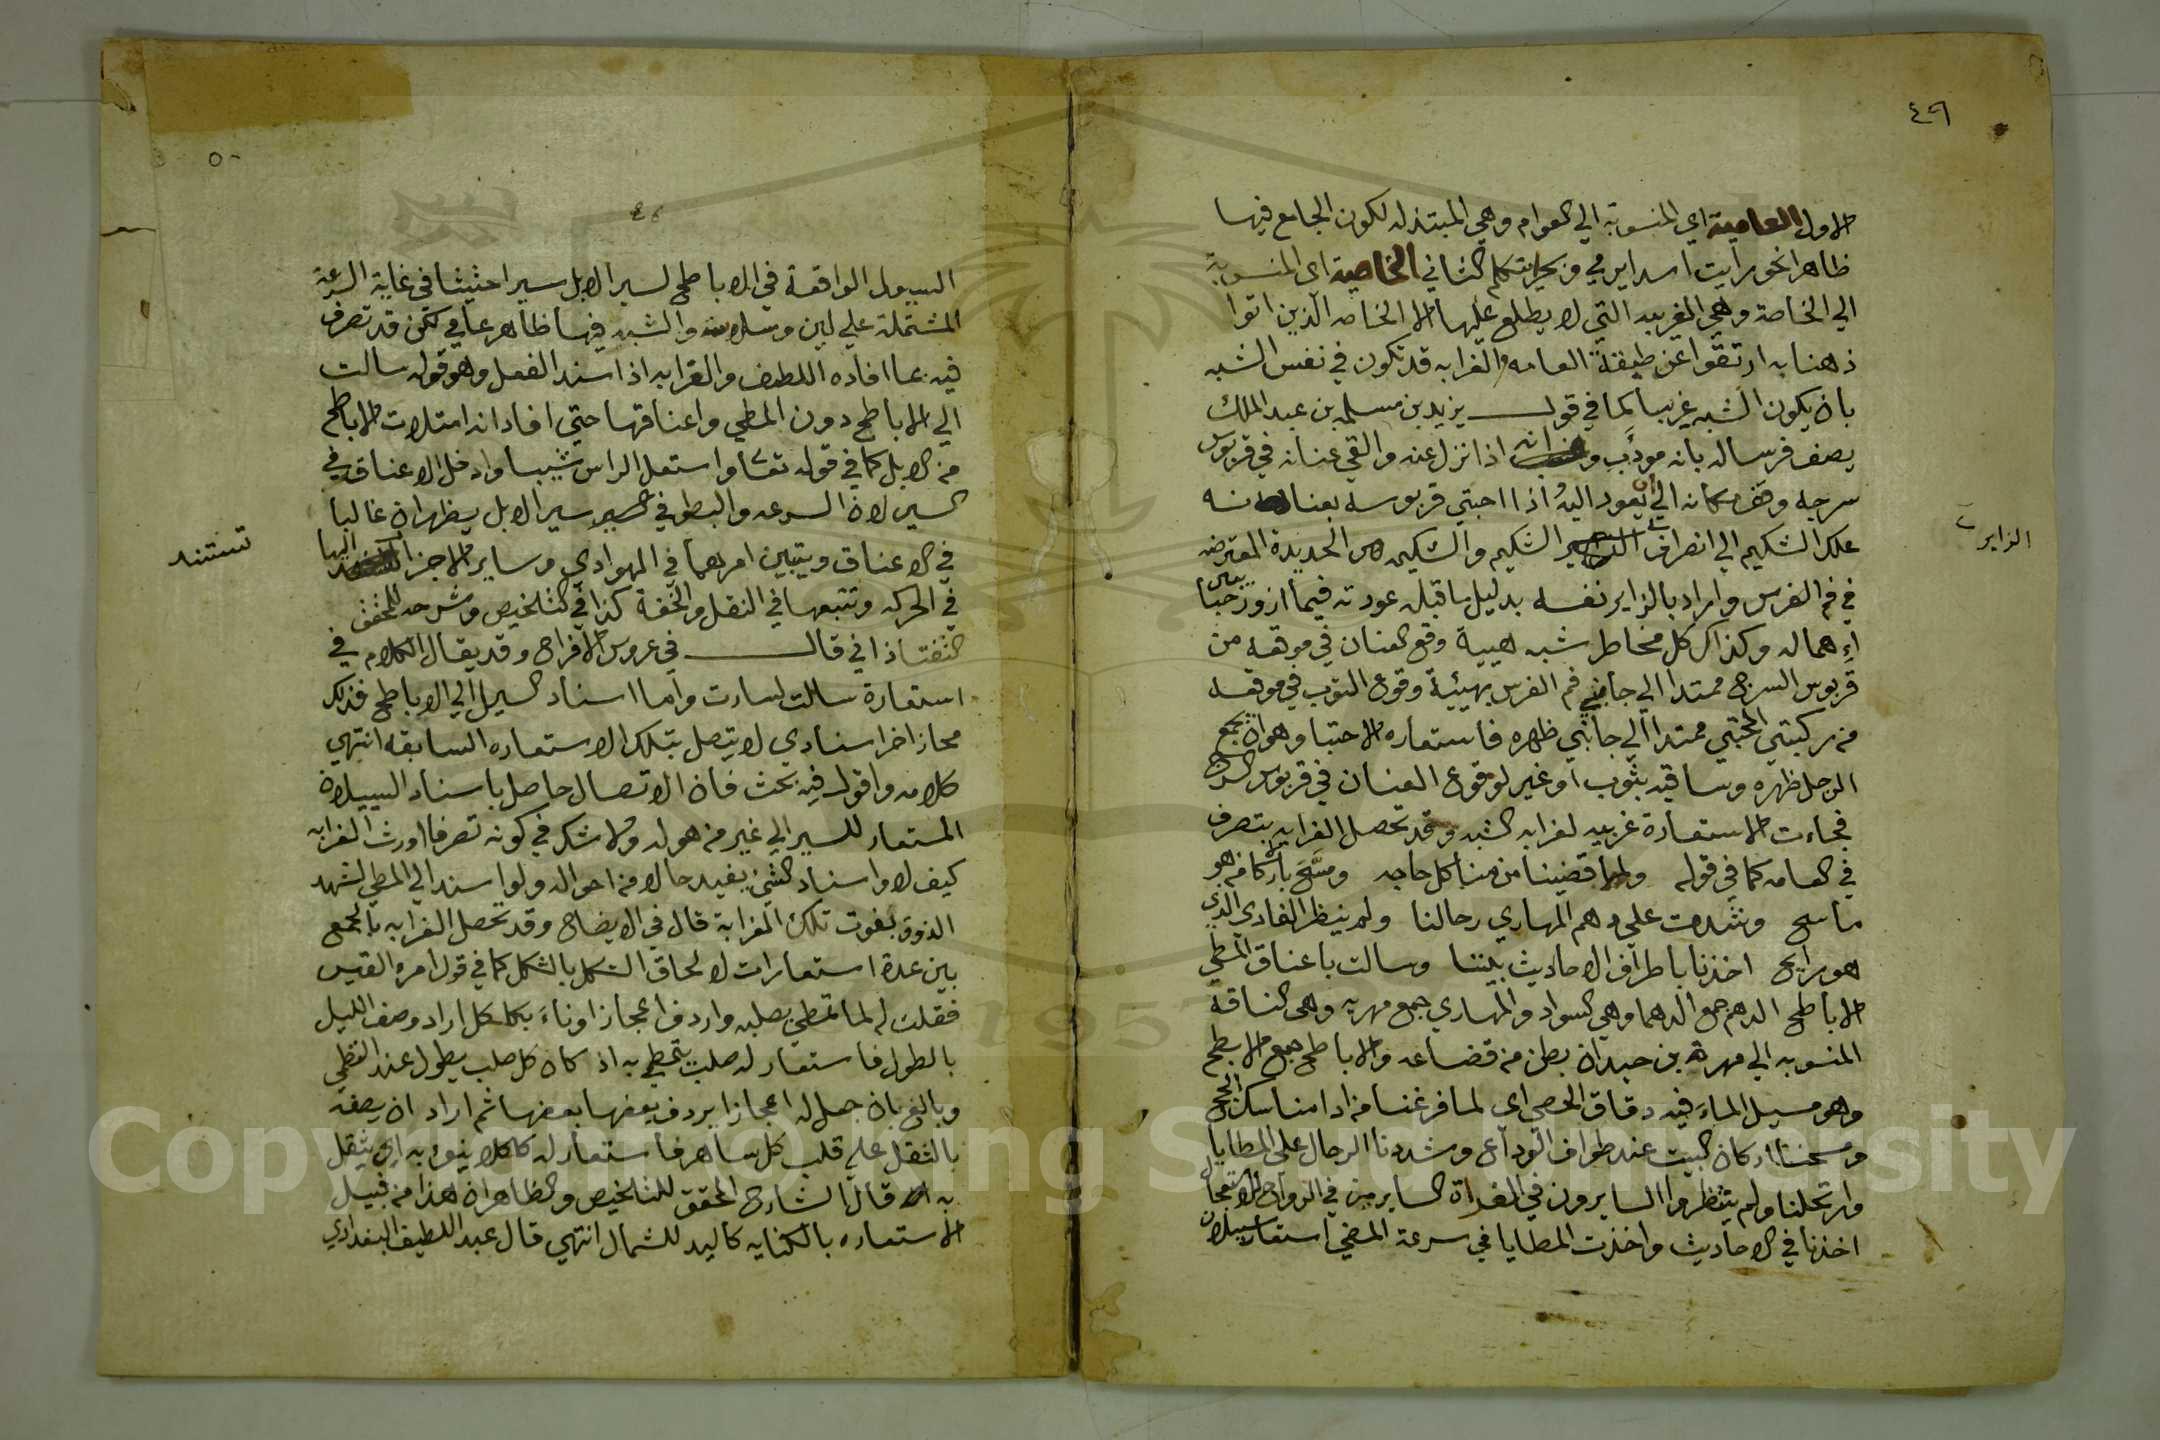 ٤٩
الاول العامية اي المنسوبة الي العوام وهي المبتذله لكون الجامع فيها
ظاهرا نحو رايت اسدا يرمي وبحرا يتكلم الثاني الخاصية اي المنسوبة
الي الخاصة وهي الغريبه التي لا يطلع عليها الا الخاصه الذين اتوا
ذهنا به ارتقوا عن طبقة العامه والغرابه قد تكون في نفس الشبه
بان يكون الشبه غريبا كما في قول يزيد بن مسلمه بن عبد الملك
يصف فرسا له بانه مودب وانه اذا نزل عنه والقي عنانه في قربوس
سرجه وقف مكانه الي ان يعود اليه اذا احتبي قربوسه بعنانه
علك الشكيم الي انصراف الشكيم والشكيمه هي الحديدة المعترضه
الزاير
في فم الفرس واراد بالزاير نفسه بدليل ما قبله عودته فيما ازور حبايبي
اهماله وكذاك كل مخاطر شبه هيية وقع العنان في موقعه من
قربوس السرج ممتدا الي جانبي فم الفرس بهيئة وقوع الثوب في موقعه
من ركبتي المحتبي ممتدا الي جانبي ظهره فاستعاره الاحتبا وهو ان يجمع
الرجل ظهره وساقيه بثوب او غيره لوقوع العنان في قربوس السرج
فجاءت الاستعارة غريبه لغرابه الشبه وقد تحصل الغرابه بتصرف
في العامه كما في قوله ولما قضينا من منا كل حاجه ومسح بالاركان من هو
ماسح وشدت علي دهم المهاري رحالنا ولم ينظر الغادي الذي
هو رايح اخذنا باطراف الاحاديث بيننا وسالت باعناق المطي
الاباطح الدهم جمع الدهما وهي السواد والمهاري جمع مهريه وهي الناقة
المنسوبه الي مهرة بن حيدان بطن من قضاعه والاباطح جمع الابطح
وهو مسيل الماء فيه دقاق الحصي اي لما فرغنا من ادا مناسك الحج
ومسحنا اركان البيت عند طواف الوداع وشددنا الرحال علي المطايا
وارتحلنا ولم ينتظروا السايرون في الغداة السايرين في الرواح للاستعجال
اخذنا في الاحاديث واخذت المطايا في سرعة المضي استعار سيلان
٥٠
٤٦
السيول الواقعة في الاباطح لسير الابل سيرا حثيثا في غاية السرعة
المشتملة علي لين وسلاسة والشبه فيها ظاهر عامي لكن قد تصرف
فيه بما افاده اللطيف والغرابه اذ اسند الفعل وهو قوله سالت
الي الاباطح دون المطي واعناقها حتي افاد انه امتلات الاباطح
من الابل كما في قوله تعا واشتعل الراس شيبا وادخل الاعناق في
السير لان السرعه والبطو في سير الابل يظهران غالبا
في الاعناق ويتبين امرهما في الهوادي وساير الاجزا اليها
تستند
في الحركه وتتبعها في الثقل والخفة كذا في التلخيص وشرحه للمحقق
التفتازاني قال في عروس الافراح وقد يقال الكلام في
استعارة سالت لسارت واما اسناد السيل الي الاباطح فذلك
مجاز اخر اسنادي لا يتصل بتلك الاستعاره السابقه انتهي
كلامه واقول فيه بحث فان الاتصال حاصل باسناد السيلان
المستعار للسير الي غير من هو له ولا شك في كونه تصرفا اورث الغرابه
كيف لا واسناد الشي يفيد حالا من احواله ولو اسند الي المطي لشهد
الذوق بفوت تلك الغرابة قال في الايضاح وقد تحصل الغرابه بالجمع
بين عدة استعارات لالحاق الشكل بالشكل كما في قول امره القيس
فقلت له لما تمطي بصلبه واردف اعجازا وناء بكلكل اراد وصف الليل
بالطول فاستعار له صلبا يتمطي به اذ كان كل صلب يطول عند التمطي
وبالغ بان جعل له اعجازا يردف بعضها بعضها ثم اراد ان يصفه
بالثقل علي قلب كل ساهر فاستعار له كلكلا ينوء به اي يثقل
به قال الشارح المحقق للتلخيص والظاهر ان هذا من قبيل
الاستعاره بالكنايه كاليد للشمال انتهي قال عبد اللطيف البغدادي
Copyright © King Saud University
1957